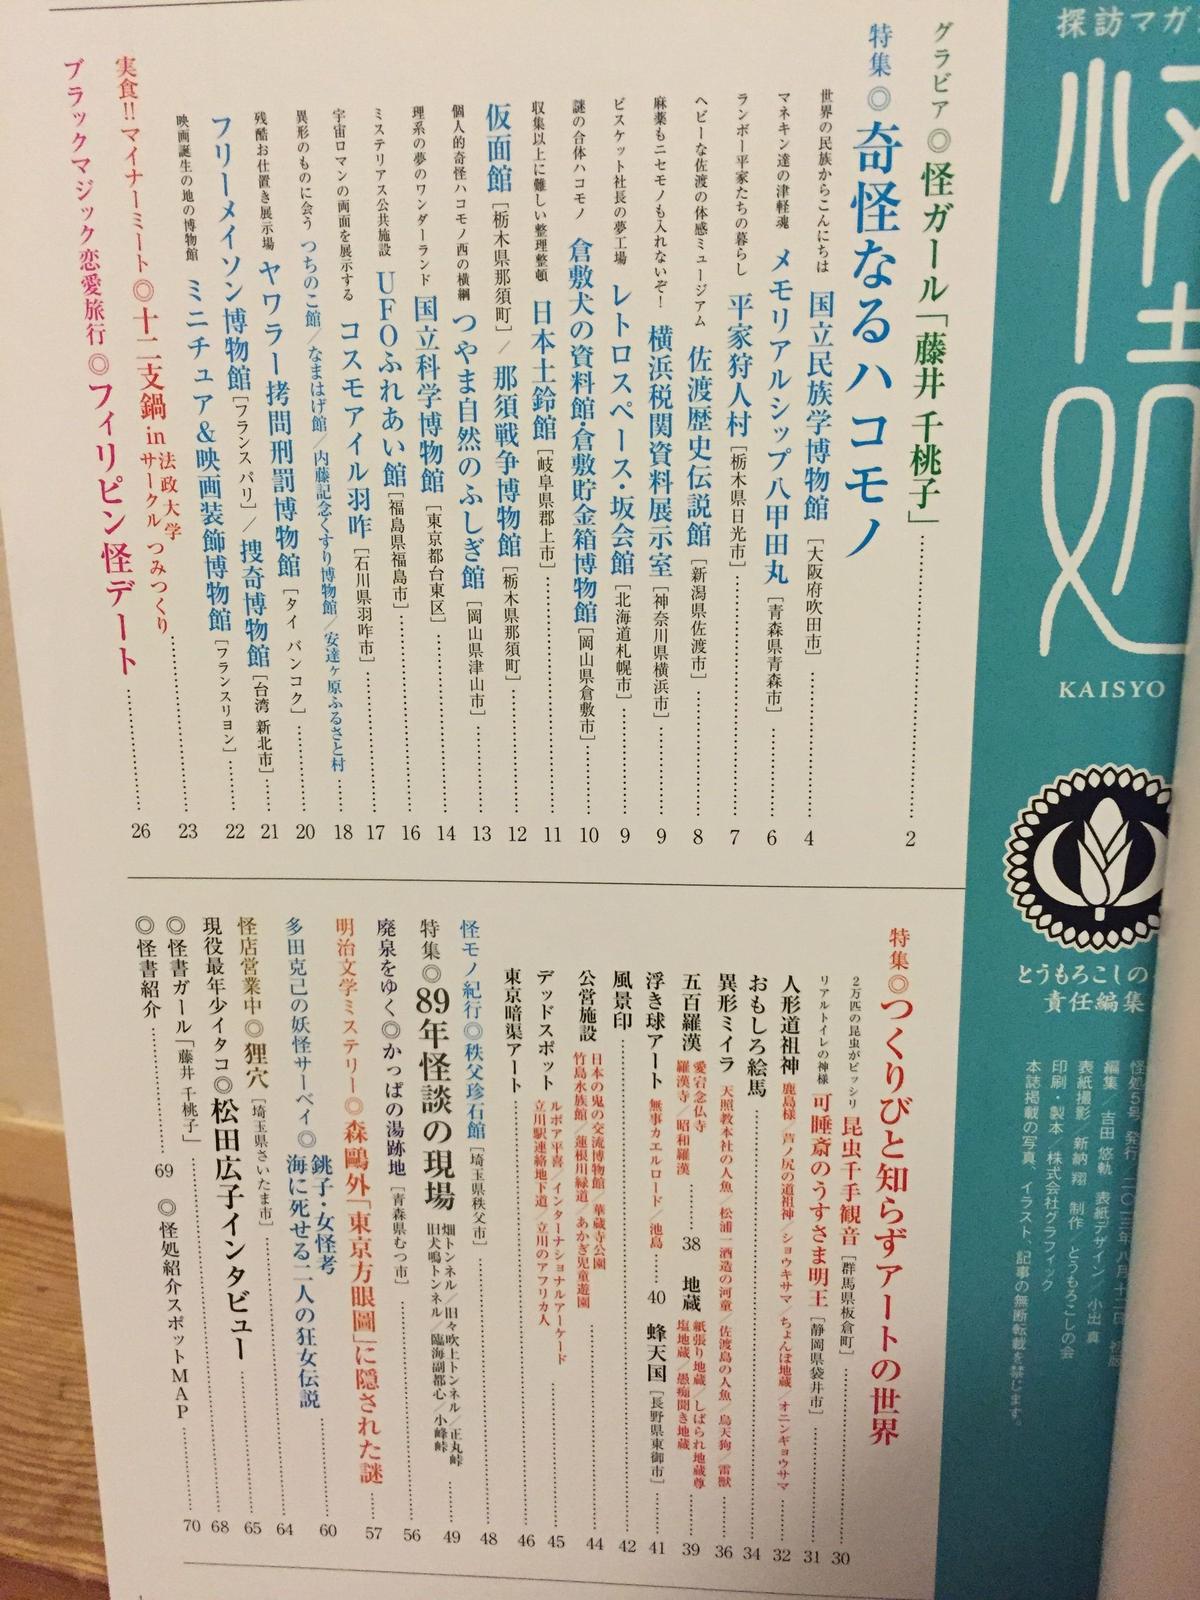 探訪マガ
怪処
KAISYO
とうもろこしの
責任編集
怪処5号 発行/二〇一三年 八月十二日 初版
編集/吉田 悠軌 表紙デザイン/小出 真
表紙撮影/新納 翔 制作/とうもろこしの会
印刷・製本/株式会社グラフィック
本誌掲載の写真、イラスト、記事の無断転載を禁じます。
グラビア◎怪ガール「藤井 千桃子」 2
特集◎奇怪なるハコモノ
世界の民族からこんにちは 国立民族学博物館[大阪府吹田市] 4
マネキン達の津軽魂 メモリアルシップ八甲田丸[青森県青森市] 6
ランボー平家たちの暮らし 平家狩人村[栃木県日光市] 7
ヘビーな佐渡の体感ミュージアム 佐渡歴史伝説館[新潟県佐渡市] 8
麻薬もニセモノも入れないぞ! 横浜税関資料展示室[神奈川県横浜市] 9
ビスケット社長の夢工場 レトロスペース・坂会館[北海道札幌市] 9
謎の合体ハコモノ 倉敷犬の資料館・倉敷貯金箱博物館[岡山県倉敷市] 10
収集以上に難しい整理整頓 日本土鈴館[岐阜県郡上市] 11
仮面館[栃木県那須町]/那須戦争博物館[栃木県那須町] 12
個人的奇怪ハコモノ西の横綱 つやま自然のふしぎ館[岡山県津山市] 13
理系の夢のワンダーランド 国立科学博物館[東京都台東区] 14
ミステリアス公共施設 UFOふれあい館[福島県福島市] 16
宇宙ロマンの両面を展示する コスモアイル羽咋[石川県羽咋市] 17
異形のものに会う つちのこ館/なまはげ館/内藤記念くすり博物館/安達ヶ原ふるさと村 18
残酷お仕置き展示場 ヤワラー拷問刑罰博物館[タイ バンコク] 20
フリーメイソン博物館[フランス パリ]/捜奇博物館[台湾 新北市] 21
映画誕生の地の博物館 ミニチュア&映画装飾博物館[フランスリヨン] 22
実食!!マイナーミート◎十二支鍋in法政大学サークル つみつくり 23
ブラックマジック恋愛旅行◎フィリピン怪デート 26
特集◎つくりびと知らずアートの世界
2万匹の昆虫がビッシリ 昆虫千手観音[群馬県板倉町] 30
リアルトイレの神様 可睡斎のうすさま明王[静岡県袋井市] 31
人形道祖神 鹿島様/芦ノ尻の道祖神/ショウキサマ/ちょんぼ地蔵/オニンギョウサマ 32
おもしろ絵馬 34
異形ミイラ 天照教本社の人魚/松浦一酒造の河童/佐渡島の人魚/烏天狗/雷獣 36
五百羅漢 愛宕念仏寺 羅漢寺/昭和羅漢 38 地蔵 紙張り地蔵/しばられ地蔵尊 塩地蔵/愚痴聞き地蔵 39
浮き球アート 無事カエルロード/池島 40 蜂天国[長野県東御市] 41
風景印 42
公営施設 日本の鬼の交流博物館/華蔵寺公園 竹島水族館/蓮根川緑道/あかぎ児童遊園 44
デッドスポット ルボア平喜/インターナショナルアーケード 立川駅連絡地下道/立川のアフリカ人 45
東京暗渠アート 46
怪モノ紀行◎秩父珍石館[埼玉県秩父市] 48
特集◎89年怪談の現場 畑トンネル/旧々吹上トンネル/正丸峠 旧犬鳴トンネル/臨海副都心/小峰峠 49
廃泉をゆく◎かっぱの湯跡地[青森県むつ市] 56
明治文学ミステリー◎森鷗外「東京方眼圖」に隠された謎 57
多田克己の妖怪サーベイ◎銚子・女怪考 海に死せる二人の狂女伝説 60
64
怪店営業中◎狸穴[埼玉県さいたま市] 65
現役最年少イタコ◎松田広子インタビュー 68
◎怪書ガール「藤井 千桃子」 69 ◎怪処紹介スポットMAP 70
◎怪書紹介